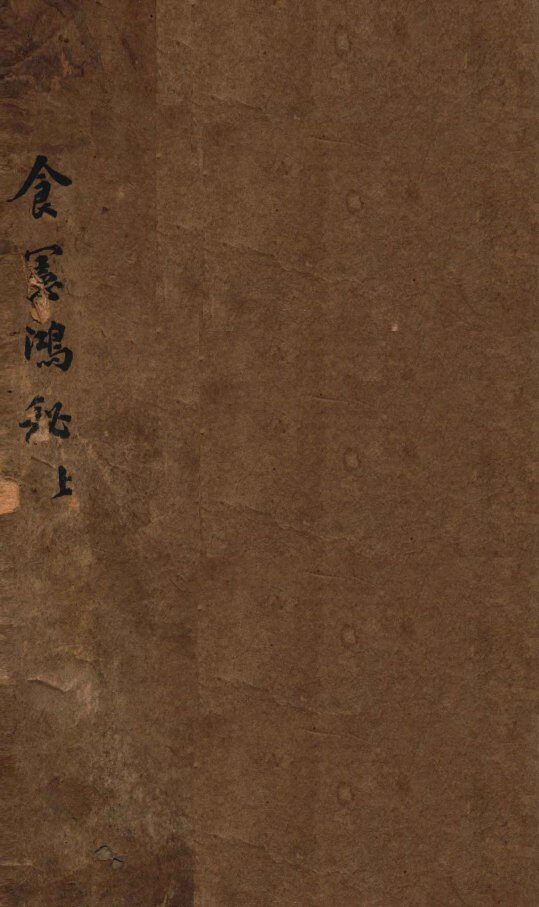 食憲鴻秘 上